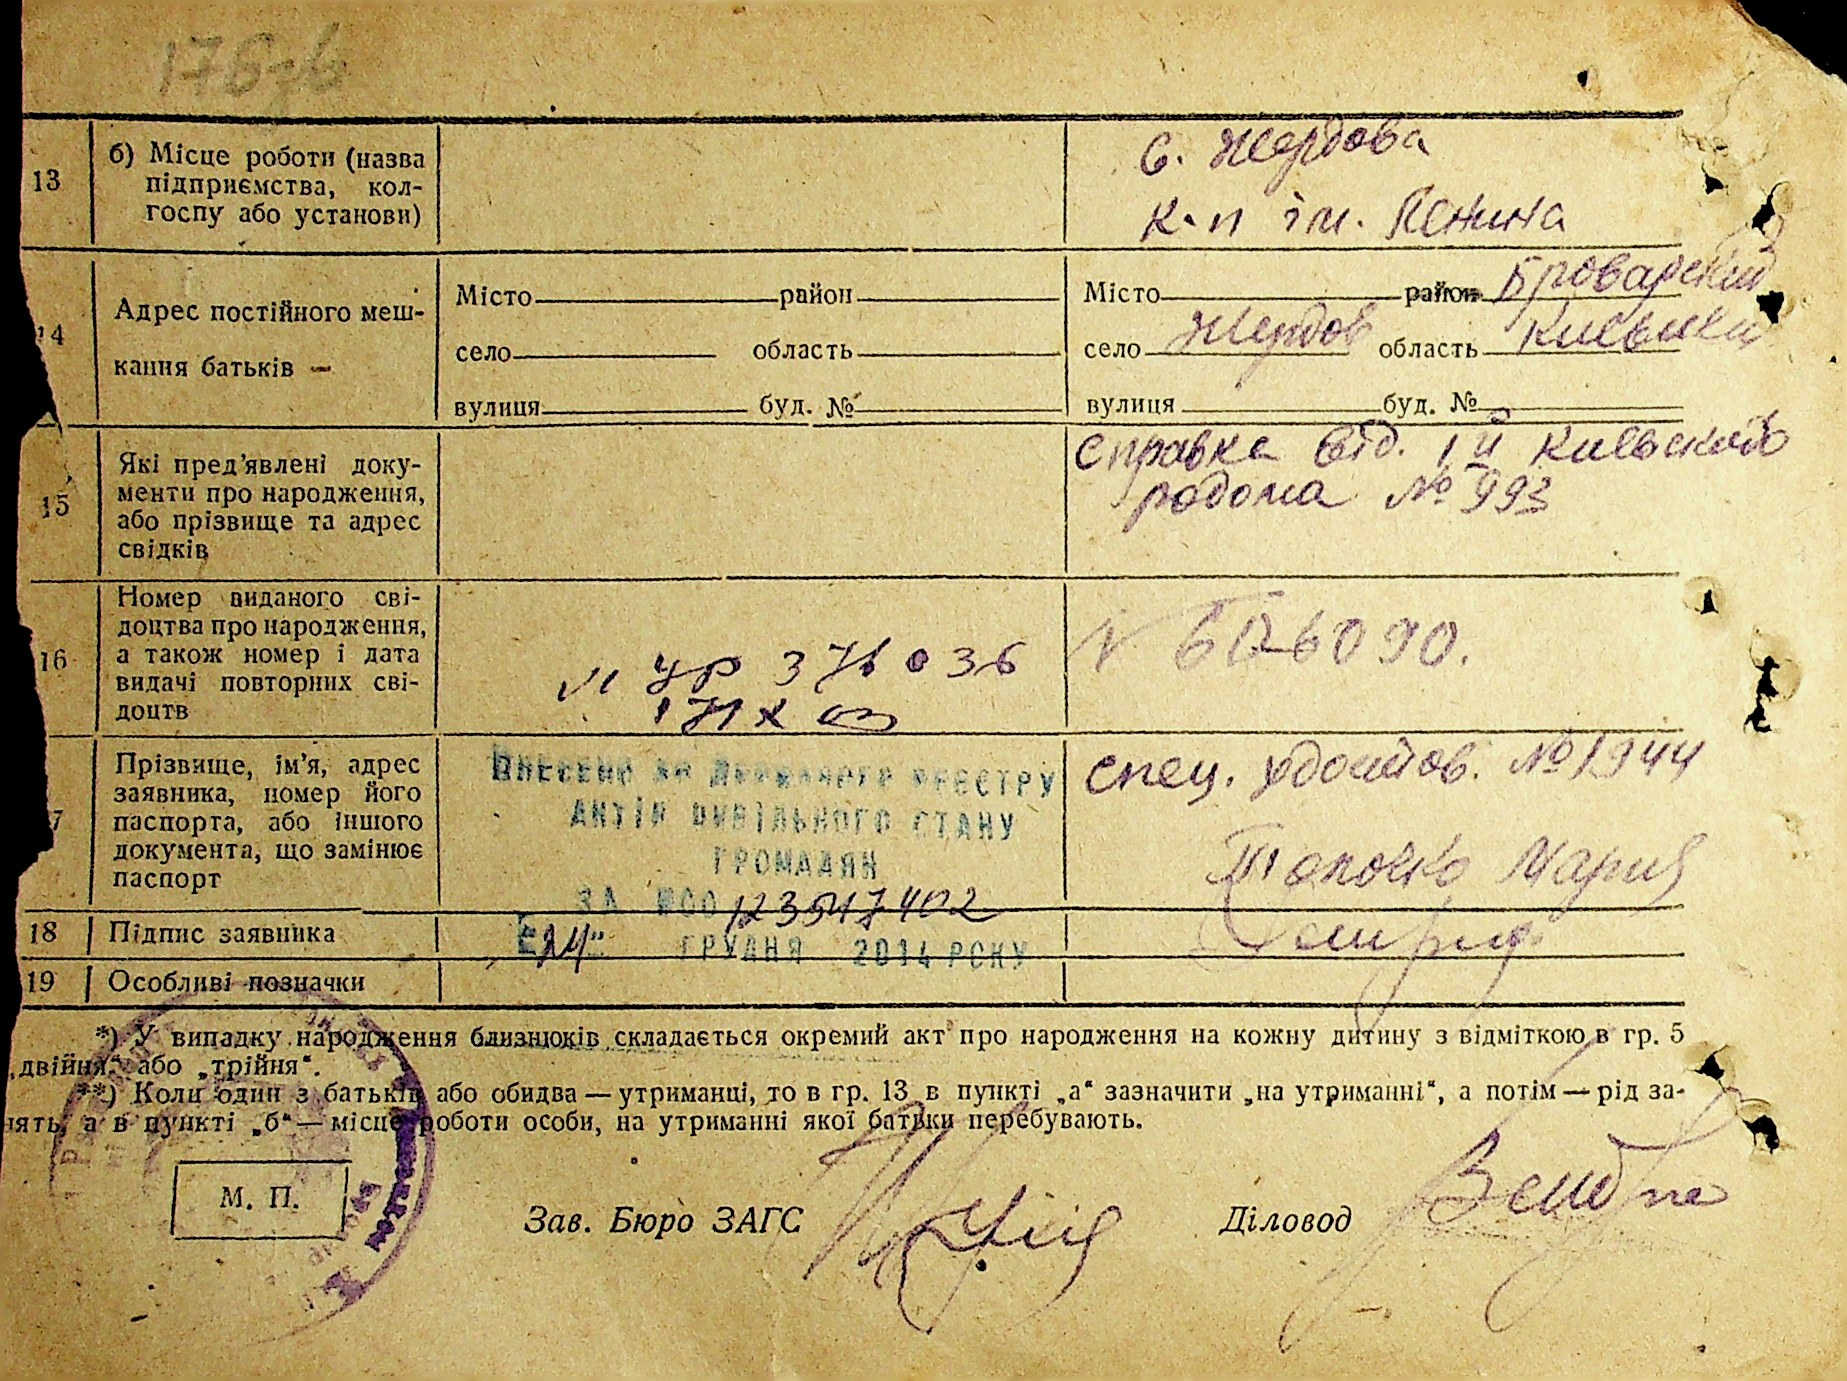 13
б) Місце роботи (назва
підприємства, кол-
госпу або установи)
с. Жердова
к-п ім. Ленина
14
Адрес постійного меш-
кання батьків —
Місто район
село область
вулиця буд. №
Місто район Броварский
село Жердов область Киевская
вулиця буд. №
15
Які пред’явлені доку-
менти про народження,
або прізвище та адрес
свідків
справка від. 1й Киевского
родома № 993
16
Номер виданого сві-
доцтва про народження,
а також номер і дата
видачі повторних сві-
доцтв
УР
036
№ 6090.
7
Прізвище, ім’я, адрес
заявника, номер його
паспорта, або іншого
документа, що замінює
паспорт
ВНЕСЕНО ДО ДЕРЖАВНОГО РЕЄСТРУ
АКТІВ ЦИВІЛЬНОГО СТАНУ
ГРОМАДЯН
ЗА №00123547402
"24" ГРУДНЯ 2014 РОКУ
спец. удостов. № 1944
Мария
18 Підпис заявника
19 Особливі позначки
*) У випадку народження близнюків складається окремий акт про народження на кожну дитину з відміткою в гр. 5
„двійня“ або „трійня“.
**) Коли один з батьків або обидва — утриманці, то в гр. 13 в пункті „а“ зазначити „на утриманні“, а потім — рід за-
нять, а в пункті „б“ — місце роботи особи, на утриманні якої батьки перебувають.
М. П.
Зав. Бюро ЗАГС
Діловод